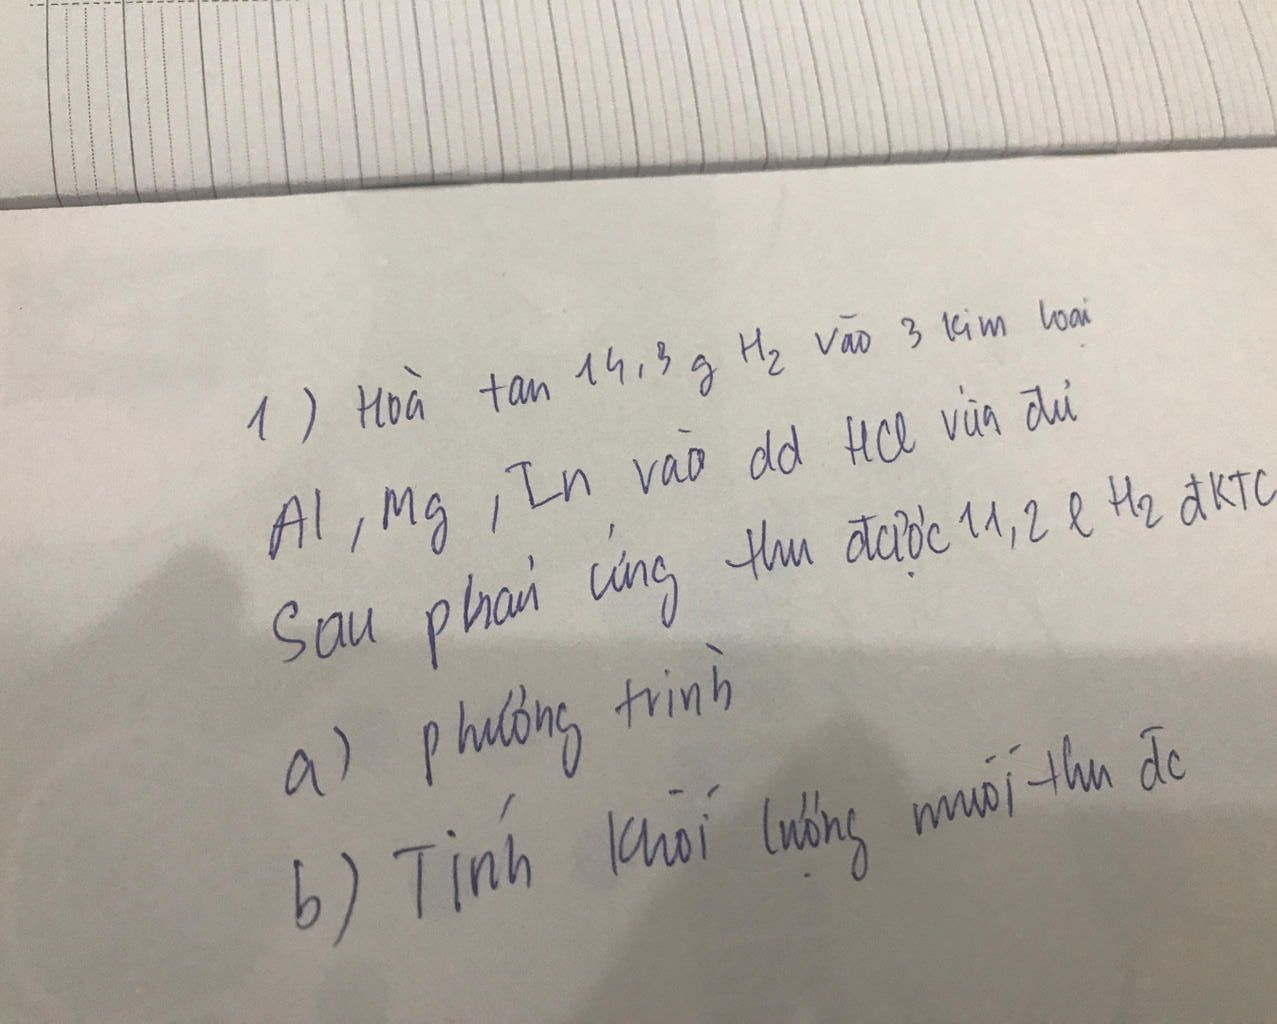 1) Hoà tan 14,3 g H2 vào 3 kim loại
Al, Mg, Zn vào dd HCl vừa đủ
Sau phản ứng thu được 11,2 l H2 đKTC
a) phương trình
b) Tính khối lượng muối thu đc